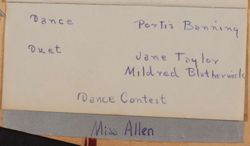 Dance Portis Banning
Duet Jane Taylor
Mildred Blotherwick
Dance Contest
Miss Allen